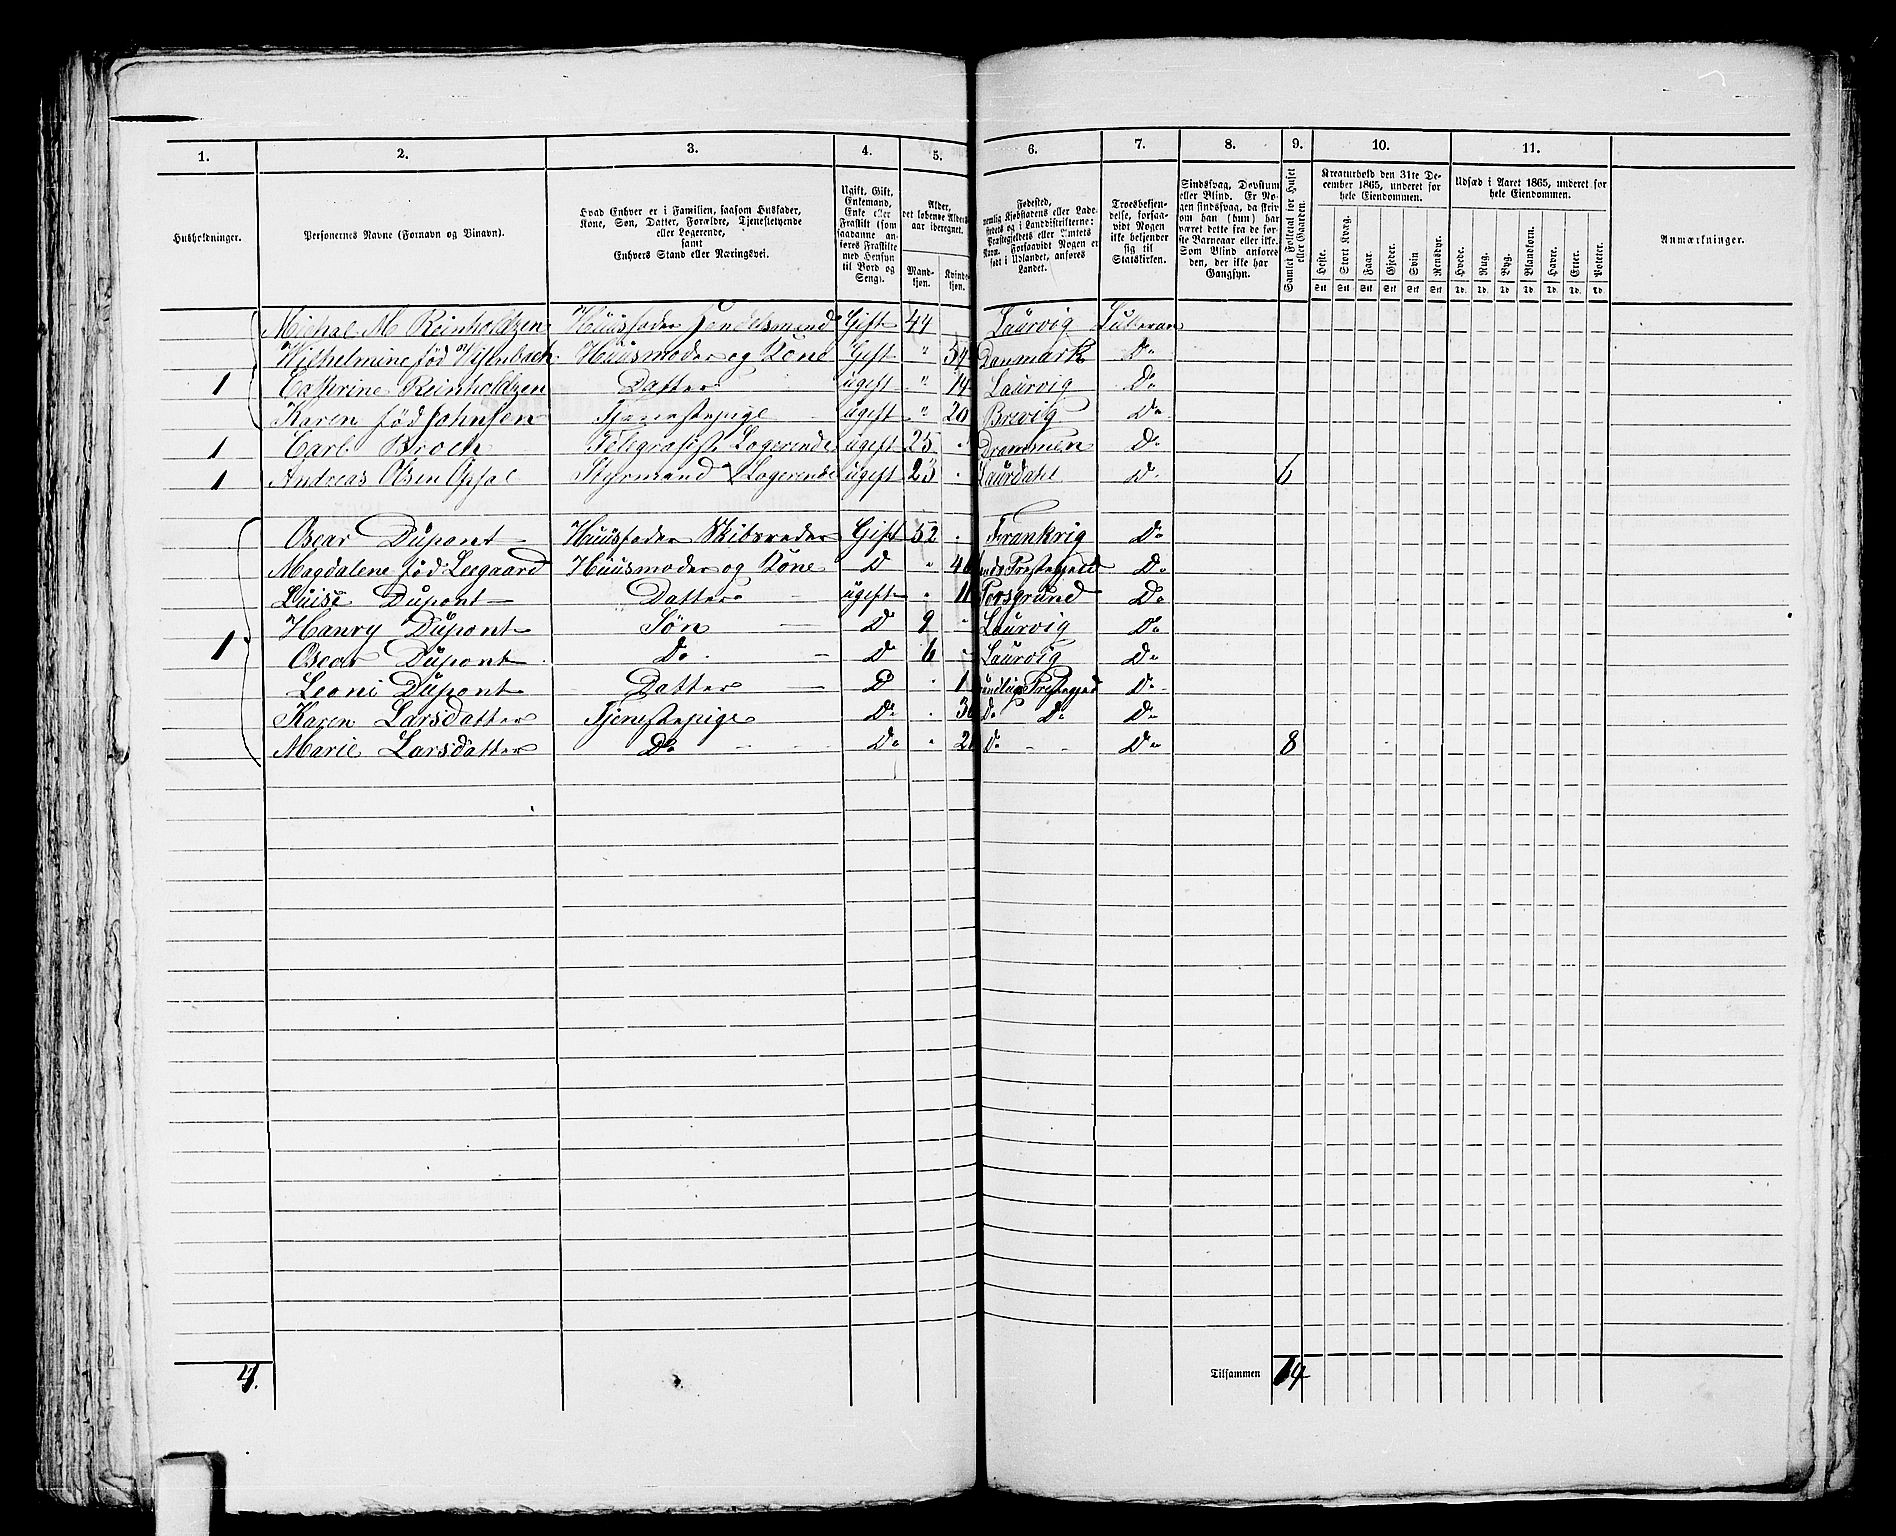 1. 2. 3. 4. 5. 6. 7. 8. 9. 10. 11.
Husholdninger.
Personernes Navne (Fornavn og Tilnavn).
Hvad Enhver er i Familien, saasom Husfader, Kone, Søn, Datter, Forældre, Tjenestetyende eller Logerende, samt Enhvers Stand eller Næringsvei.
Ugift, Gift, Enkemand, Enke eller Fraskilt (som saadanne anføres Fraskilte med Hensyn til Bord og Seng).
Alder, det løbende Alders-aar iberegnet.
Mand-kjøn. Kvinde-kjøn.
Troesbekjendelse, forsaavidt Nogen ikke bekjender sig til Statskirken.
Sindssvag, Døvstum eller Blind. Er Nogen sindssvag, da skrives om han (hun) har været dette fra de første Barneaar eller ikke. Som Blind anføres den, der ikke har Gangsyn.
Samlet Folketal for Huset eller Gaarden.
Kreaturhold den 31te December 1865, underet for hele Eiendommen.
Heste. Stort Kvæg. Faar. Gjeder. Svin Rensdyr.
Udsæd i Aaret 1865, underet for hele Eiendommen.
Hvede. Rug. Byg. Blandkorn. Havre. Erter. Poteter.
Anmærkninger.
Michal M Reinholdtzen Huusfader Handelsmand Gift 44 Laurvig Luteran
Wilhelmine fød Huusmoder og Kone Gift " 54 Danmark Do
1 Cathrine Reinholdtzen Datter ugift " 14 Laurvig Do
Karen fød Johnsen Tjenestepige ugift " 20 Brevig Do
1 Carl Broch Telegrafist Logerende ugift 25 " Drammen Do
1 Andreas Olsen Opsal Styrmand Logerende ugift 23 Laurdahl D 6
Oscar Dupont Huusfader Skibsreder Gift 52 Frankrig Do
Magdalene fød Leegaard Huusmoder og Kone D " Do
Luise Dupont Datter ugift 11 Porsgrund Do
Hanry Dupont Søn D 9 Laurvig Do
1 Oscar Dupont Do D 6 Laurvig Do
Leoni Dupont Datter D 1 Do
Karen Larsdatter Tjenestepige Do Do Do Do
Marie Larsdatter Do Do Do Do 8
4. Tilsammen 14